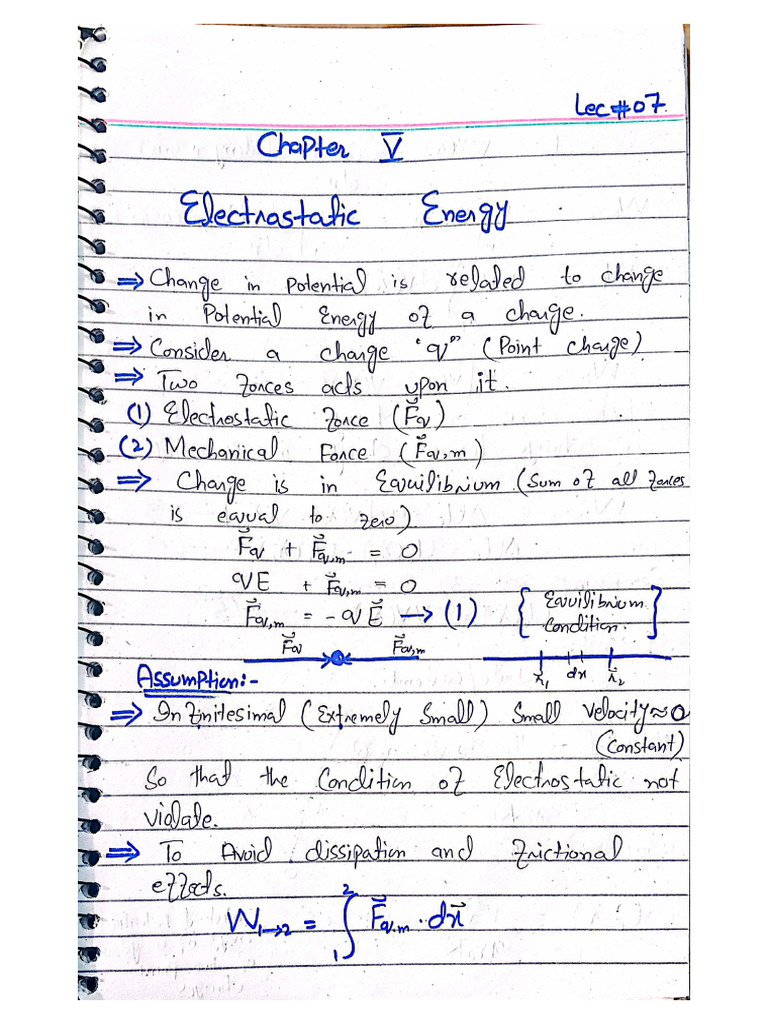 Lec#07
Chapter V
Electrostatic Energy
⇒ Change in potential is related to change
in Potential Energy of a charge.
⇒ Consider a charge "q" (Point charge)
⇒ Two forces acts upon it.
(1) Electrostatic force (F⃗q)
(2) Mechanical Force (F⃗q,m)
⇒ Charge is in Equilibrium (Sum of all forces
is equal to zero)
F⃗q + F⃗q,m = 0
qE + F⃗q,m = 0
F⃗q,m = -qE⃗ → (1) [Equilibrium
Condition.]
F⃗q F⃗q,m
r⃗1 dr r⃗2
Assumption:-
⇒ Infinitesimal (Extremely Small) Small Velocity ≈ 0
(Constant)
So that the Condition of Electrostatic not
violate.
⇒ To Avoid dissipation and frictional
effects.
W1→2 = ∫₁² F⃗q,m · dr⃗